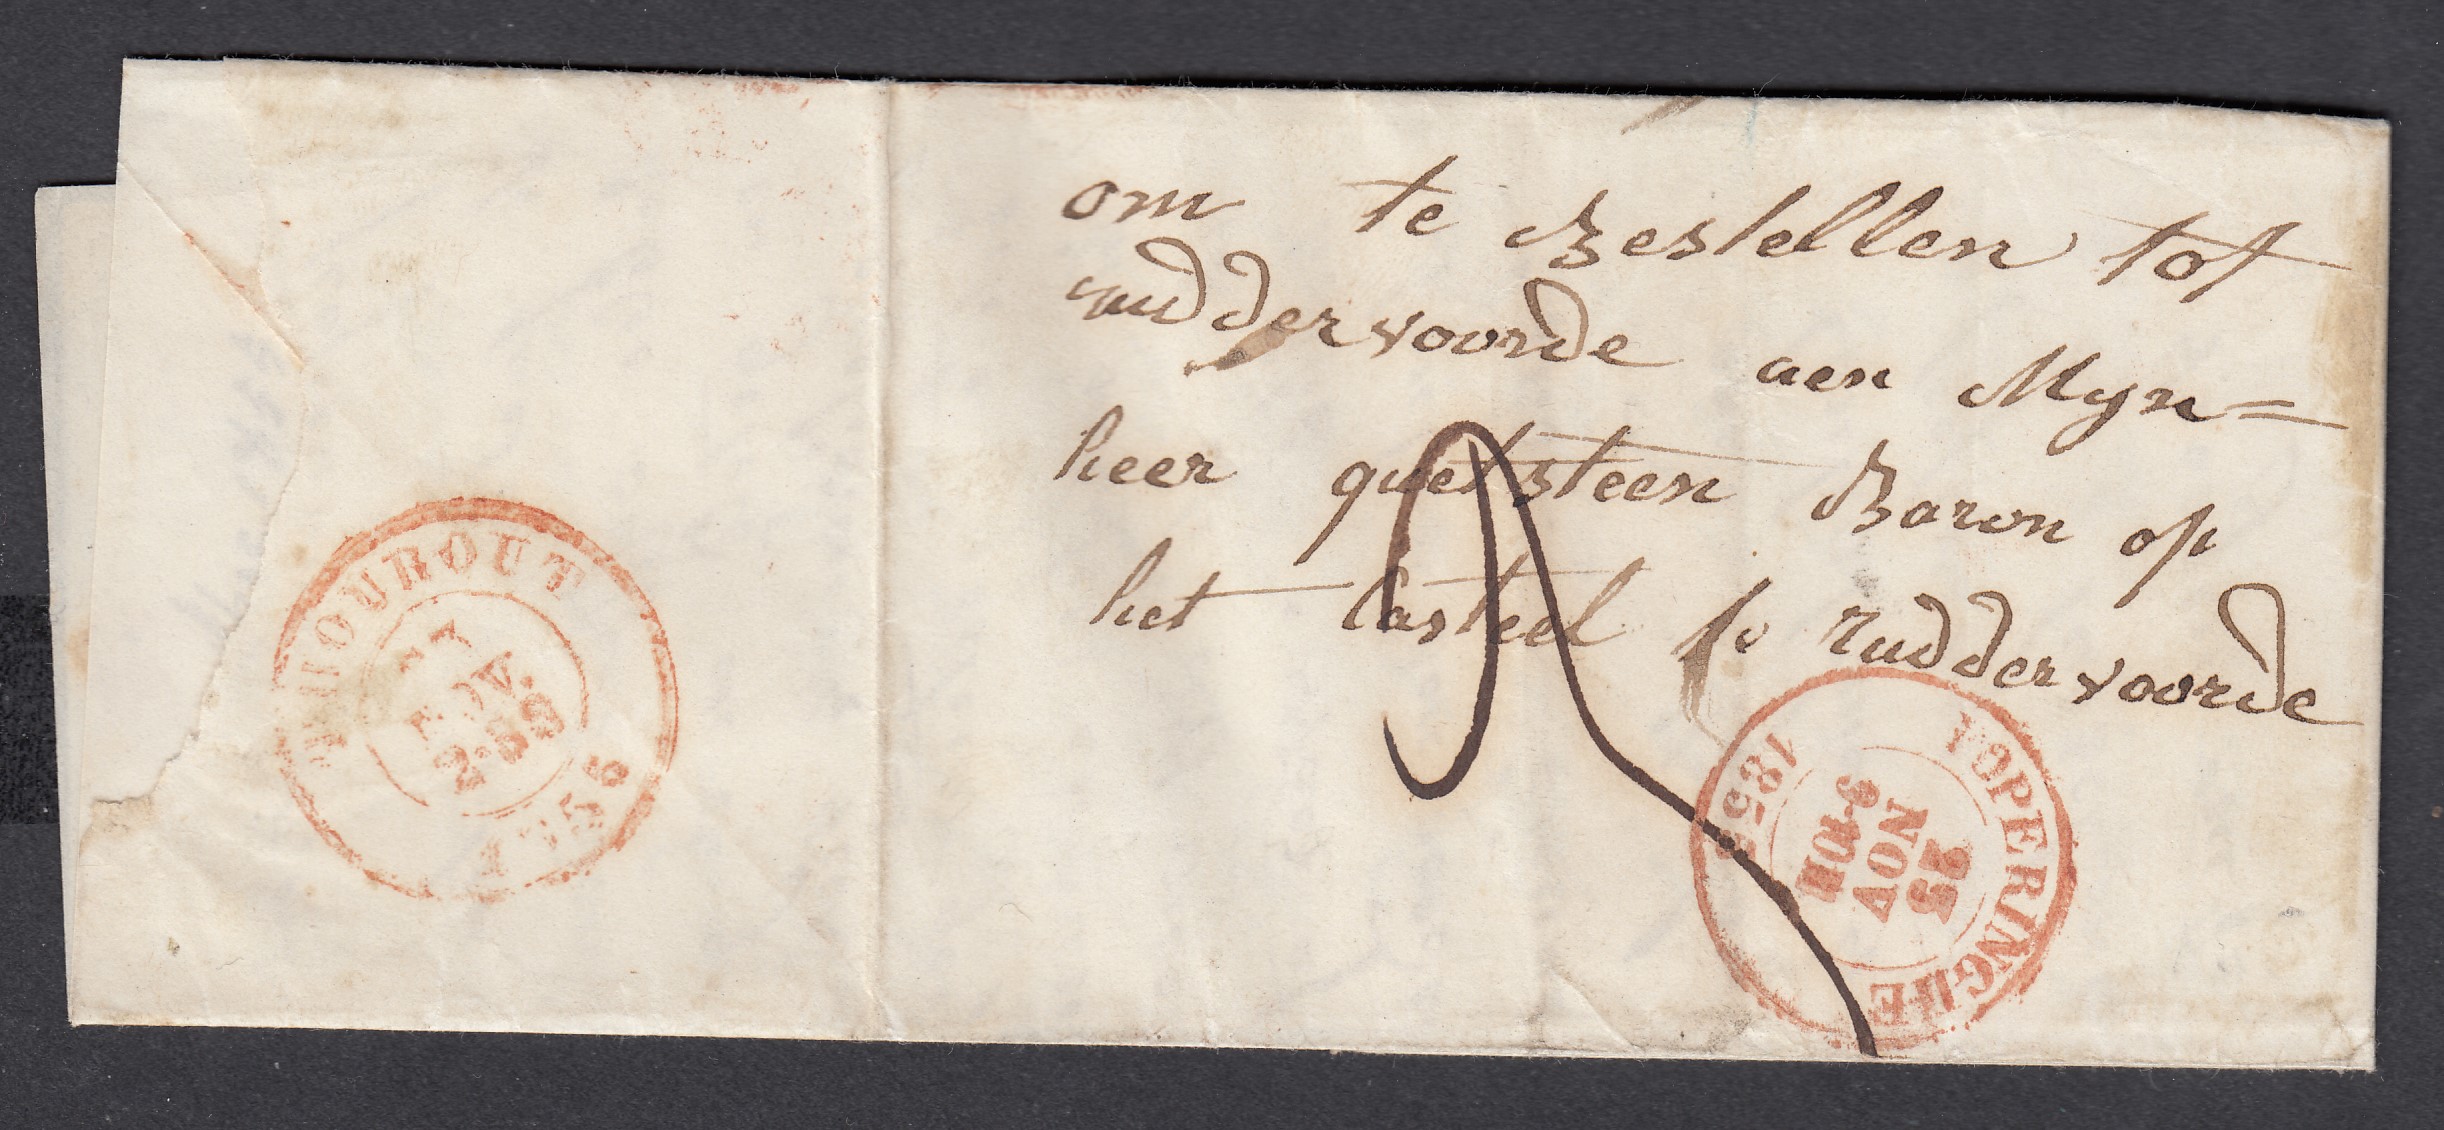 om te Bestellen tot
ruddervoorde aen Myn=
heer quetsteen Baron op
het Casteel te ruddervoorde
THOUROUT
NOV.
1856
POPERINGHE
25
NOV
9-10H
185